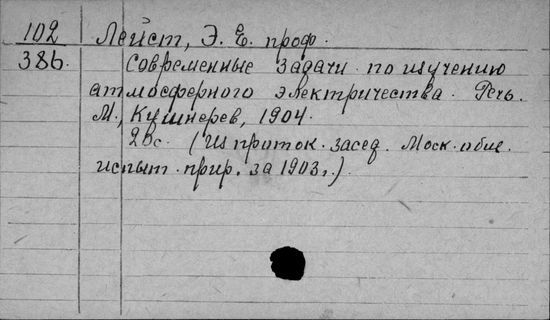 102 Лейст, Э. Е. проф.
386. Современные задачи по изучению
атмосферного электричества. Речь.
М., Кушнерев, 1904.
28с. (Из проток. засед. Моск. общ.
испыт. прир. за 1903г.)